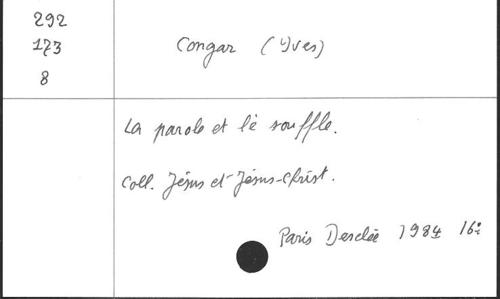 292
173
8
Congar (Yves)
La parole et le souffle.
Coll. Jésus et Jésus-Christ.
Paris Desclée 1984 16°